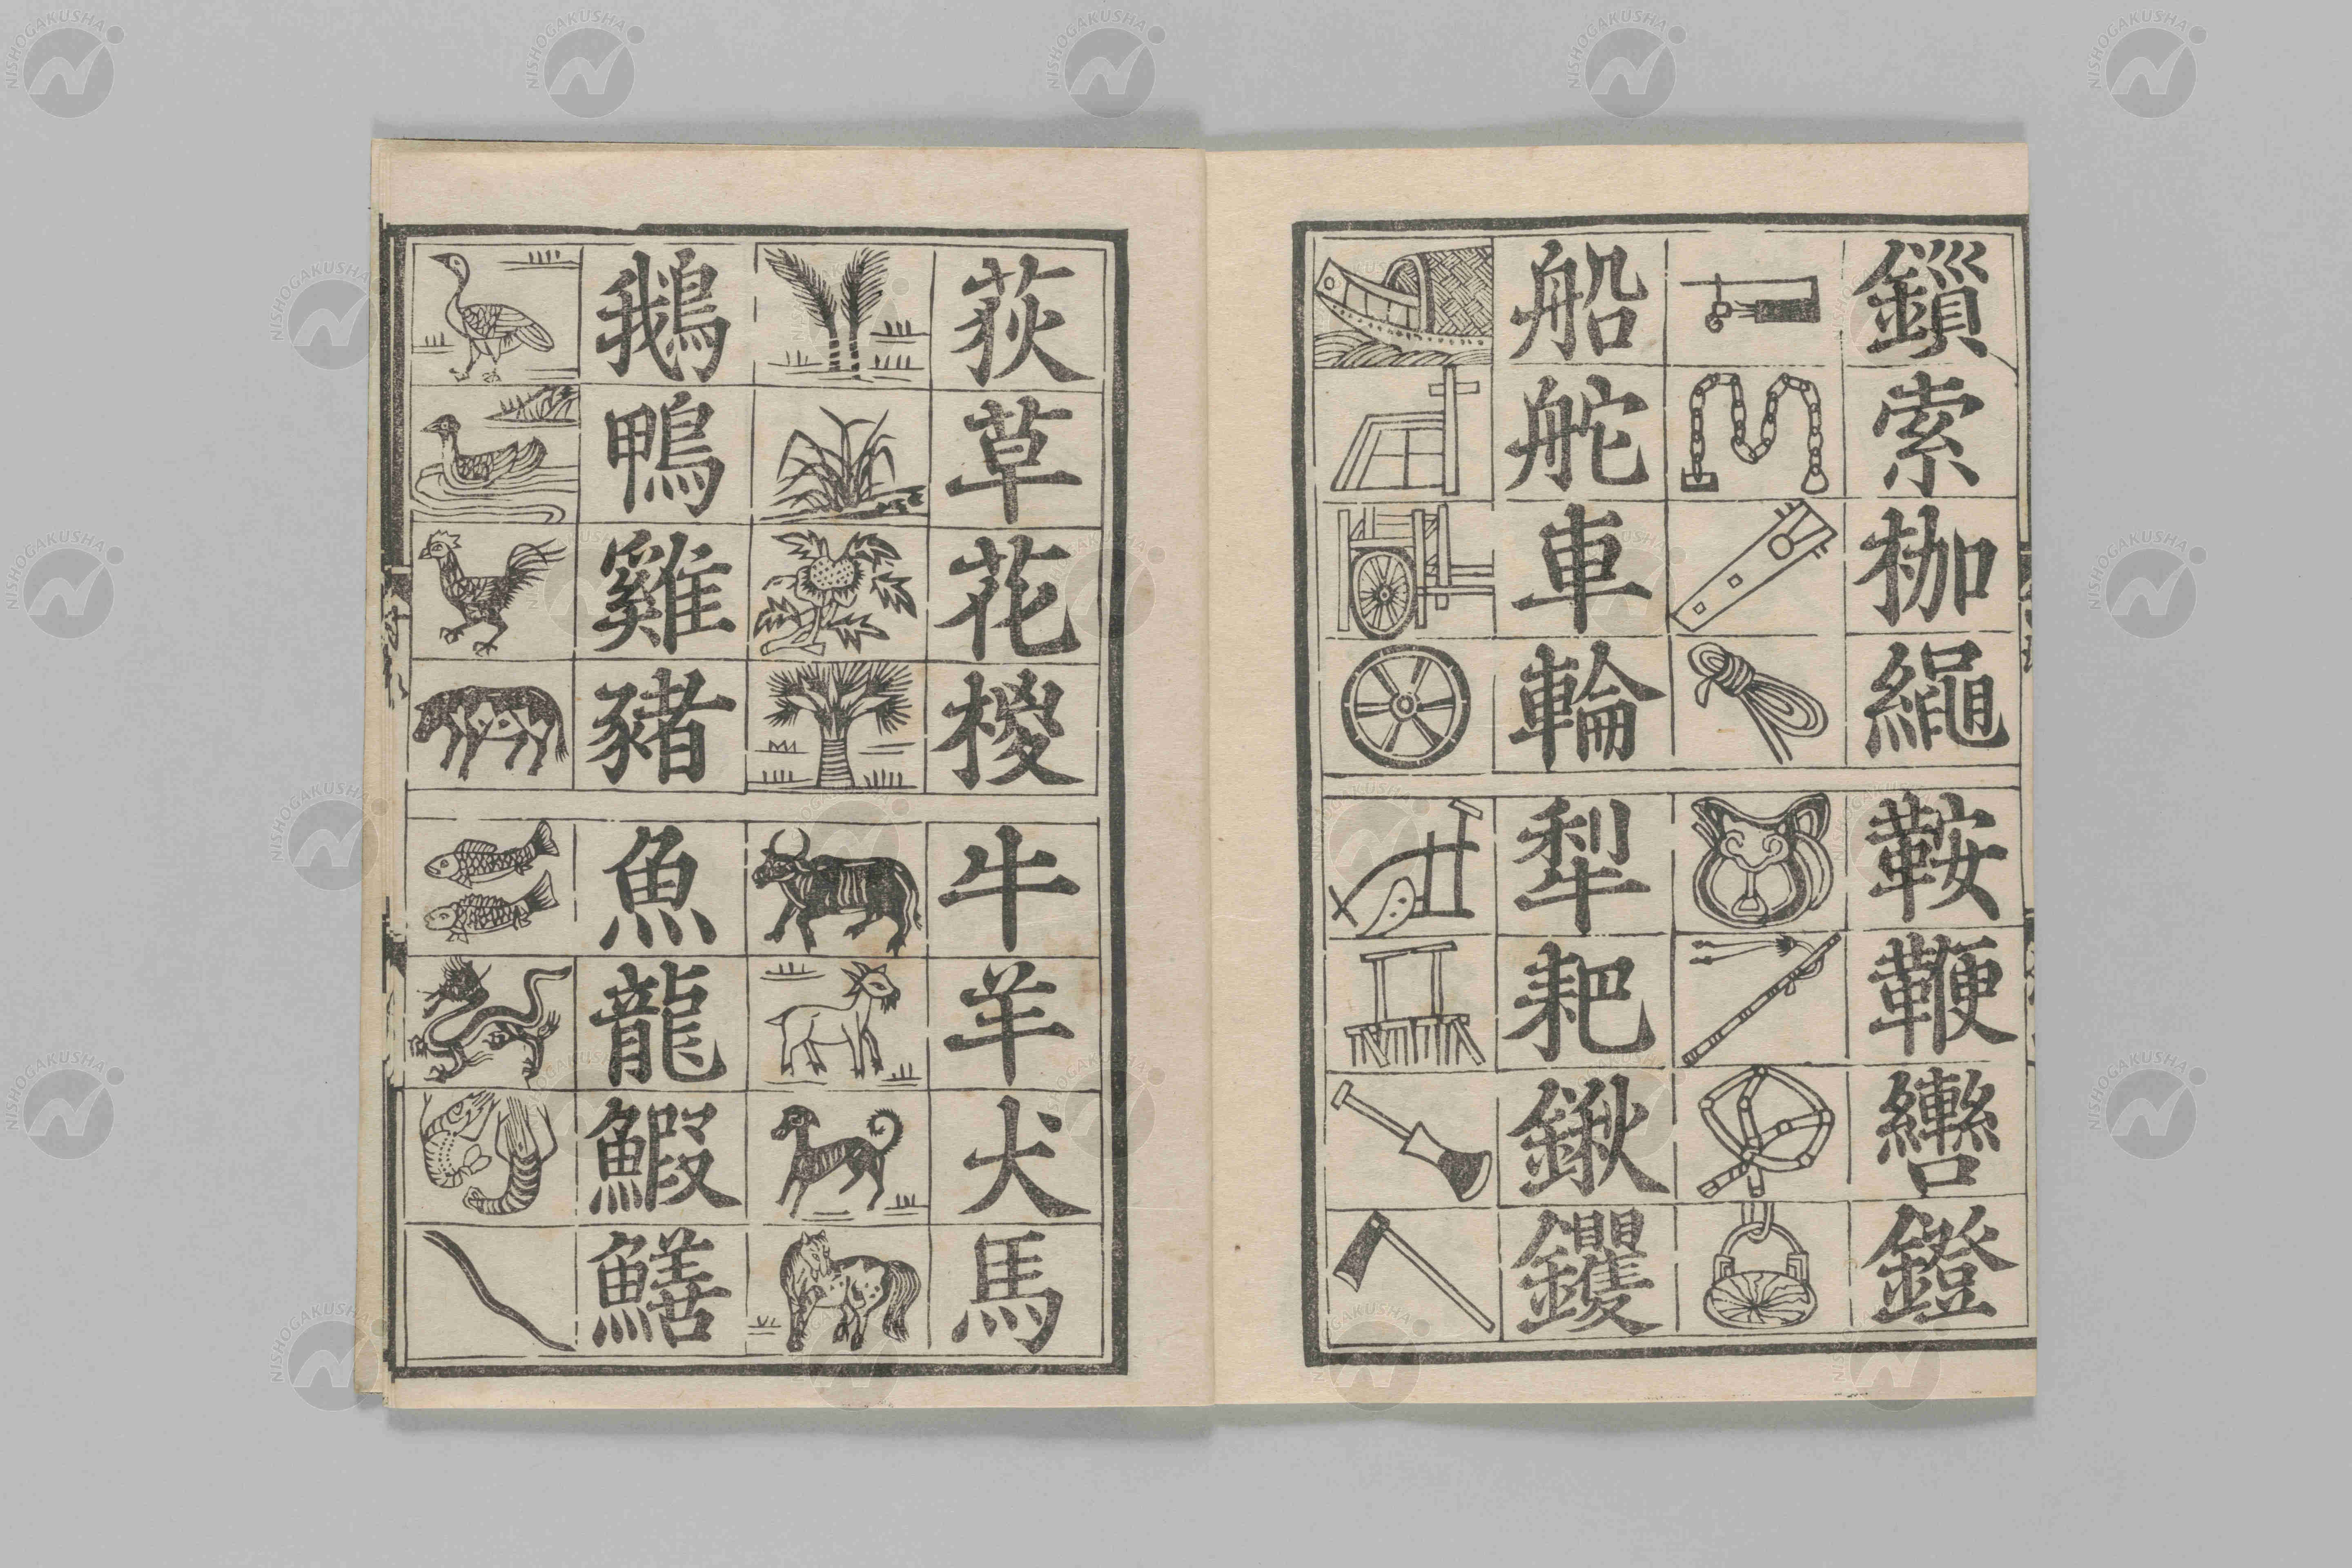 鎻索枷繩
鞍鞭轡鐙
船舵車輪
犁耙鍬钁
荻草花椶
牛羊犬馬
鵝鴨雞豬
魚龍鰕鱔
NISHOGAKUSHA